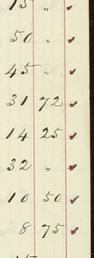 15 "
50 "
45 "
31 72
14 25
32 "
10 50
8 75